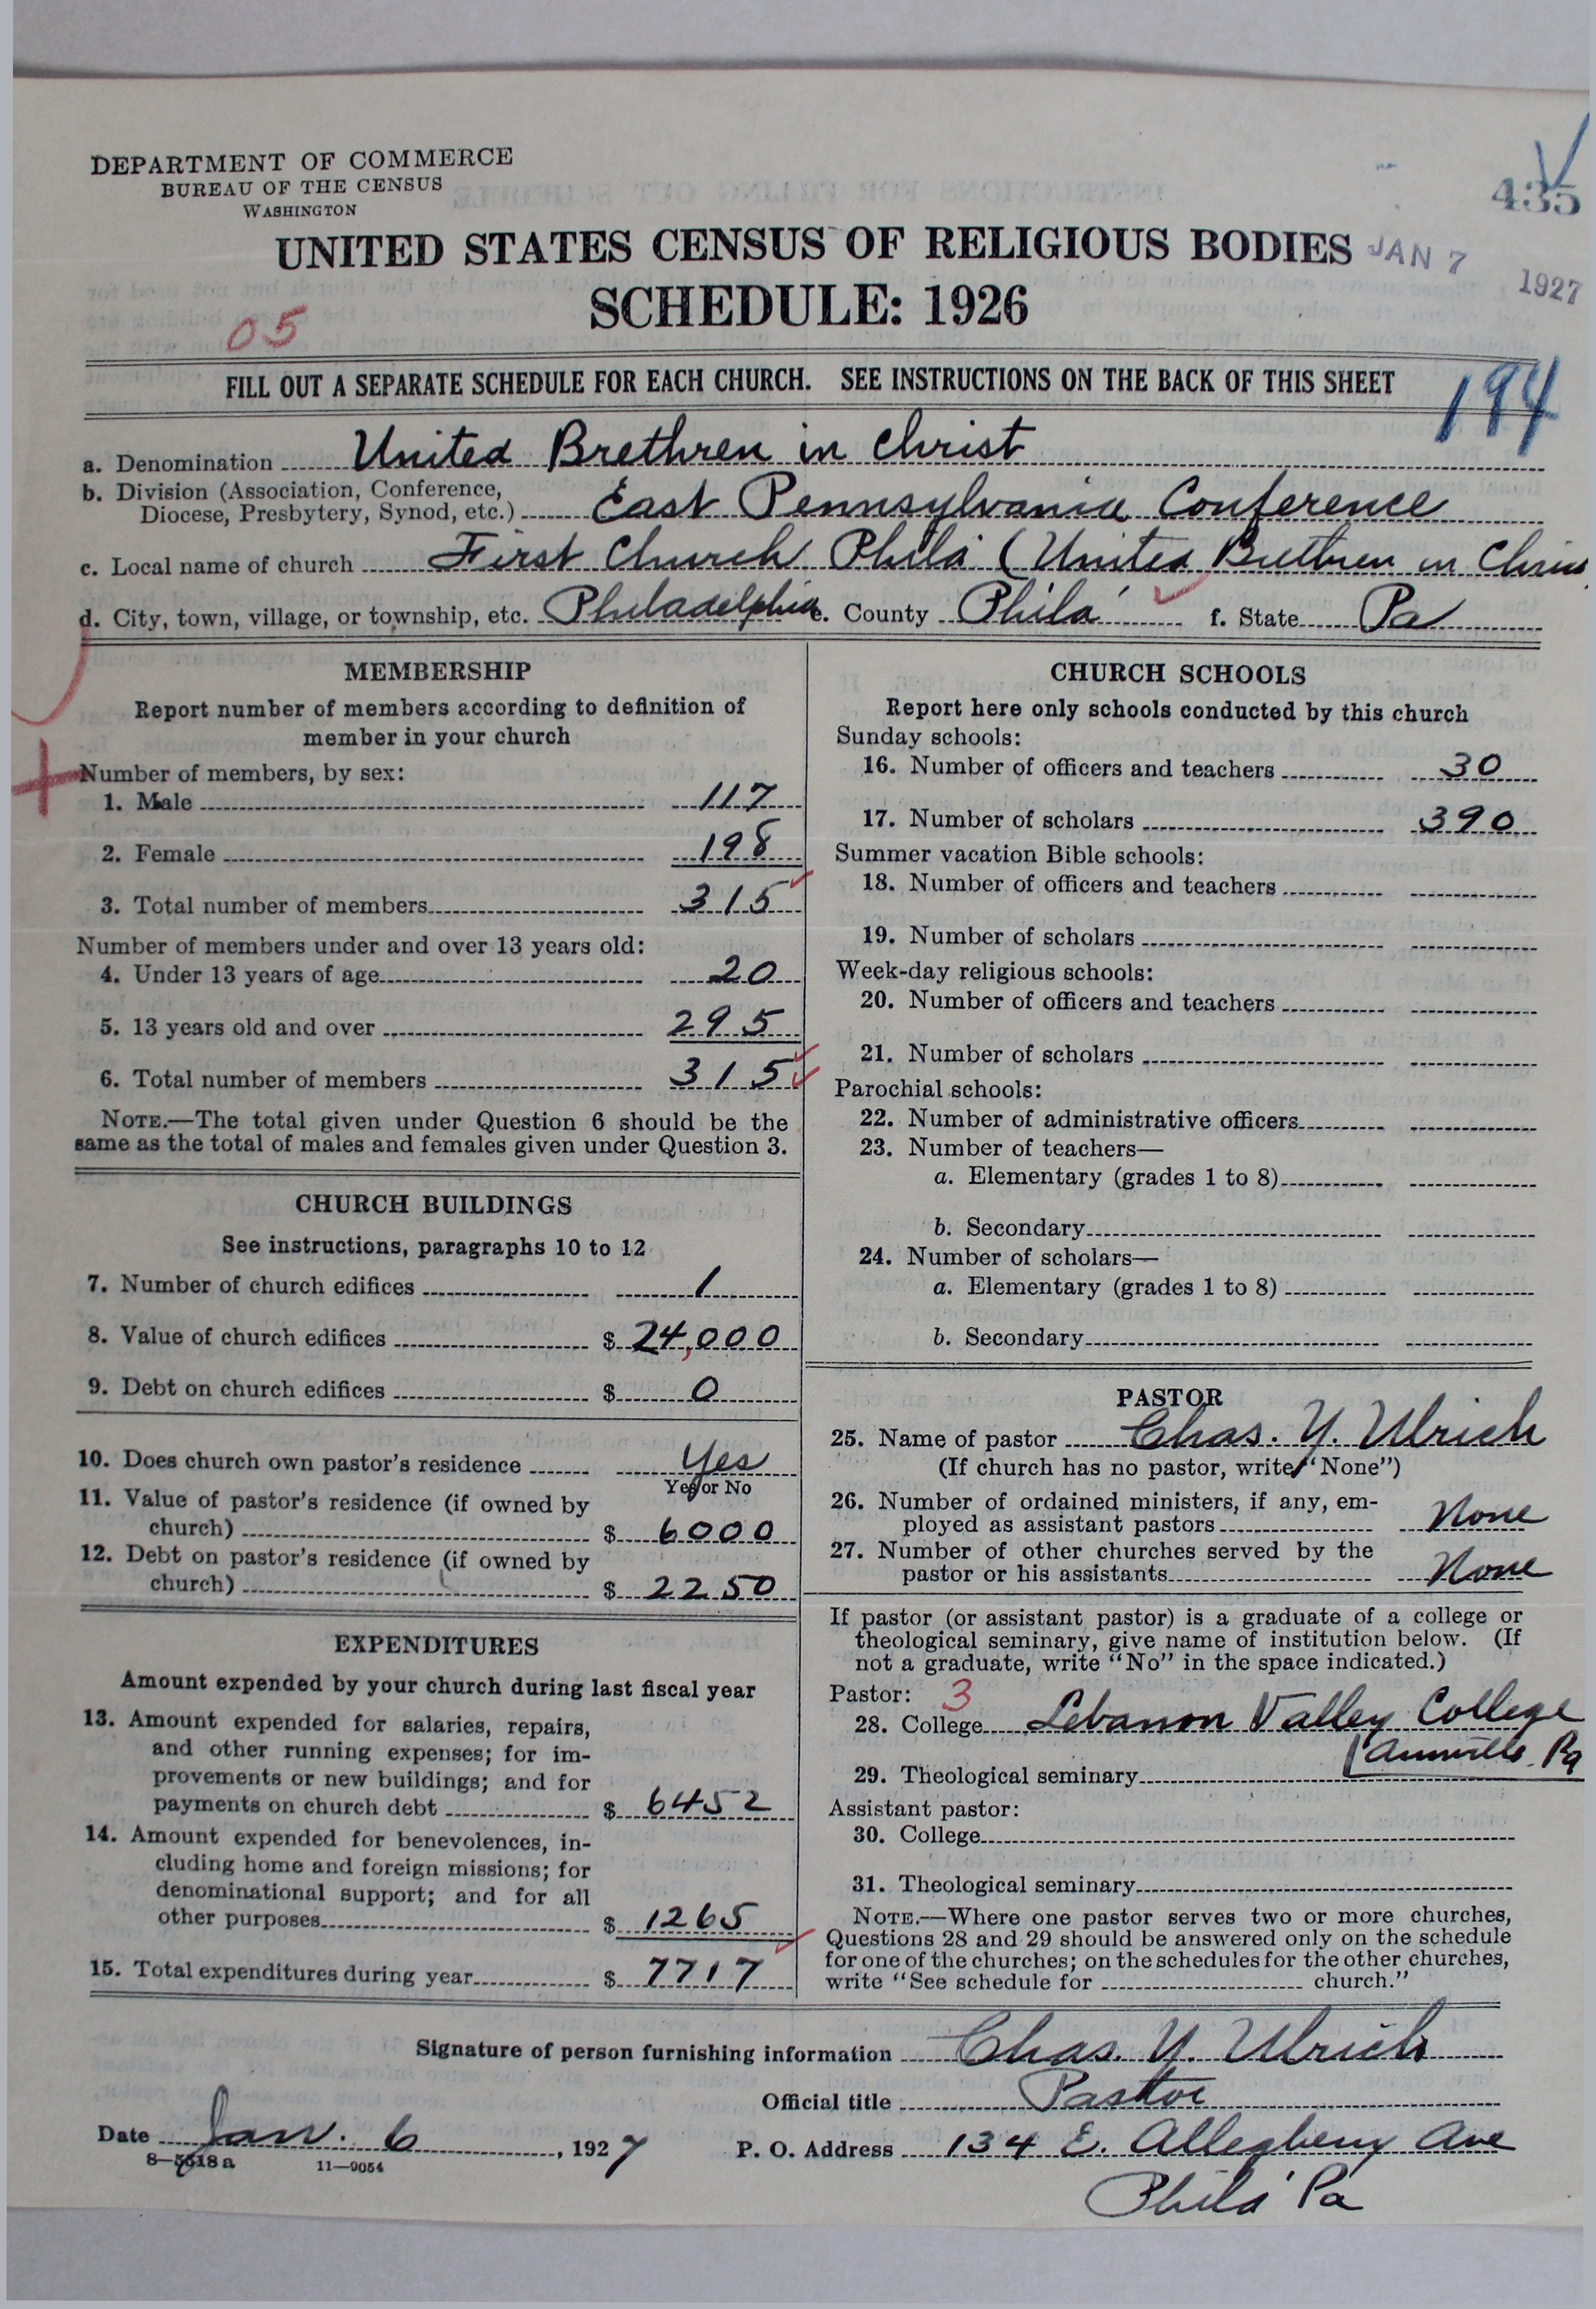 DEPARTMENT OF COMMERCE
BUREAU OF THE CENSUS
WASHINGTON
435
UNITED STATES CENSUS OF RELIGIOUS BODIES
JAN 7 1927
SCHEDULE: 1926
05
FILL OUT A SEPARATE SCHEDULE FOR EACH CHURCH. SEE INSTRUCTIONS ON THE BACK OF THIS SHEET
194
a. Denomination United Brethren in Christ
b. Division (Association, Conference,
Diocese, Presbytery, Synod, etc.) East Pennsylvania Conference
c. Local name of church First Church Phila (United Brethren in Chris
d. City, town, village, or township, etc. Philadelphia e. County Phila f. State Pa
MEMBERSHIP
Report number of members according to definition of
member in your church
Number of members, by sex:
1. Male 117
2. Female 198
3. Total number of members 315
Number of members under and over 13 years old:
4. Under 13 years of age 20
5. 13 years old and over 295
6. Total number of members 315
NOTE.—The total given under Question 6 should be the
same as the total of males and females given under Question 3.
CHURCH BUILDINGS
See instructions, paragraphs 10 to 12
7. Number of church edifices 1
8. Value of church edifices $ 24,000
9. Debt on church edifices $ 0
10. Does church own pastor's residence Yes
Yes or No
11. Value of pastor's residence (if owned by
church) $ 6000
12. Debt on pastor's residence (if owned by
church) $ 2250
EXPENDITURES
Amount expended by your church during last fiscal year
13. Amount expended for salaries, repairs,
and other running expenses; for im-
provements or new buildings; and for
payments on church debt $ 6452
14. Amount expended for benevolences, in-
cluding home and foreign missions; for
denominational support; and for all
other purposes $ 1265
15. Total expenditures during year $ 7717
CHURCH SCHOOLS
Report here only schools conducted by this church
Sunday schools:
16. Number of officers and teachers 30
17. Number of scholars 390
Summer vacation Bible schools:
18. Number of officers and teachers
19. Number of scholars
Week-day religious schools:
20. Number of officers and teachers
21. Number of scholars
Parochial schools:
22. Number of administrative officers
23. Number of teachers—
a. Elementary (grades 1 to 8)
b. Secondary
24. Number of scholars—
a. Elementary (grades 1 to 8)
b. Secondary
PASTOR
25. Name of pastor Chas. Y. Ulrich
(If church has no pastor, write "None")
26. Number of ordained ministers, if any, em-
ployed as assistant pastors None
27. Number of other churches served by the
pastor or his assistants None
If pastor (or assistant pastor) is a graduate of a college or
theological seminary, give name of institution below. (If
not a graduate, write "No" in the space indicated.)
Pastor: 3
28. College Lebanon Valley College
(Annville Pa
29. Theological seminary
Assistant pastor:
30. College
31. Theological seminary
NOTE.—Where one pastor serves two or more churches,
Questions 28 and 29 should be answered only on the schedule
for one of the churches; on the schedules for the other churches,
write "See schedule for church."
Signature of person furnishing information Chas. Y. Ulrich
Official title Pastor
Date Jan. 6, 1927 P. O. Address 134 E. Allegheny Ave
8—5518a 11—9054
Phila Pa